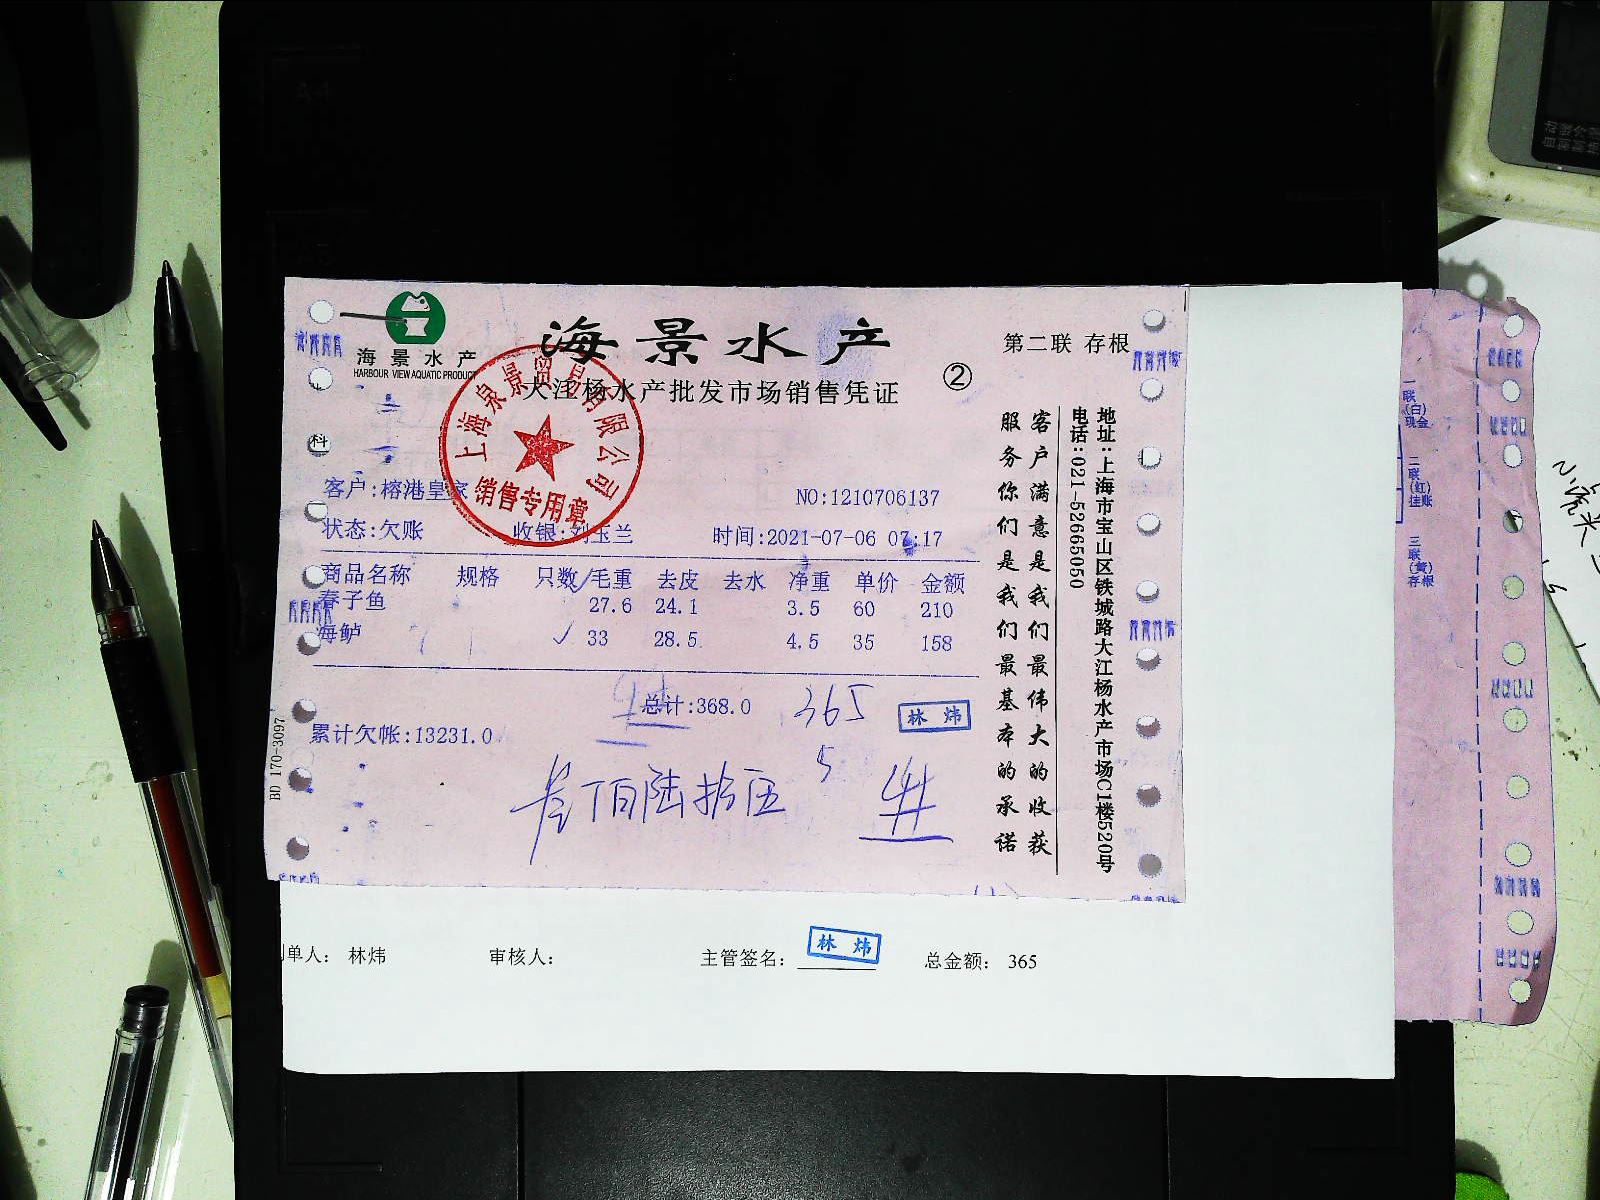 海景水产
HARBOUR VIEW AQUATIC PRODUCT
海景水产
大江杨水产批发市场销售凭证
②
第二联 存根
上海泉景贸易有限公司
销售专用章
科
客户:榕港皇家
NO:1210706137
状态:欠账 收银:刘玉兰 时间:2021-07-06 07:17
商品名称 规格 只数 毛重 去皮 去水 净重 单价 金额
春子鱼 27.6 24.1 3.5 60 210
海鲈 33 28.5 4.5 35 158
总计:368.0
365
林 炜
累计欠帐:13231.0
叁佰陆拾伍
5
BD 170-3097
客户满意是我们最伟大的收获
服务你们是我们最基本的承诺
地址:上海市宝山区铁城路大江杨水产市场C1楼520号
电话:021-52665050
单人: 林炜 审核人: 主管签名: 林 炜 总金额: 365
一联(白)现金
二联(红)挂账
三联(黄)存根